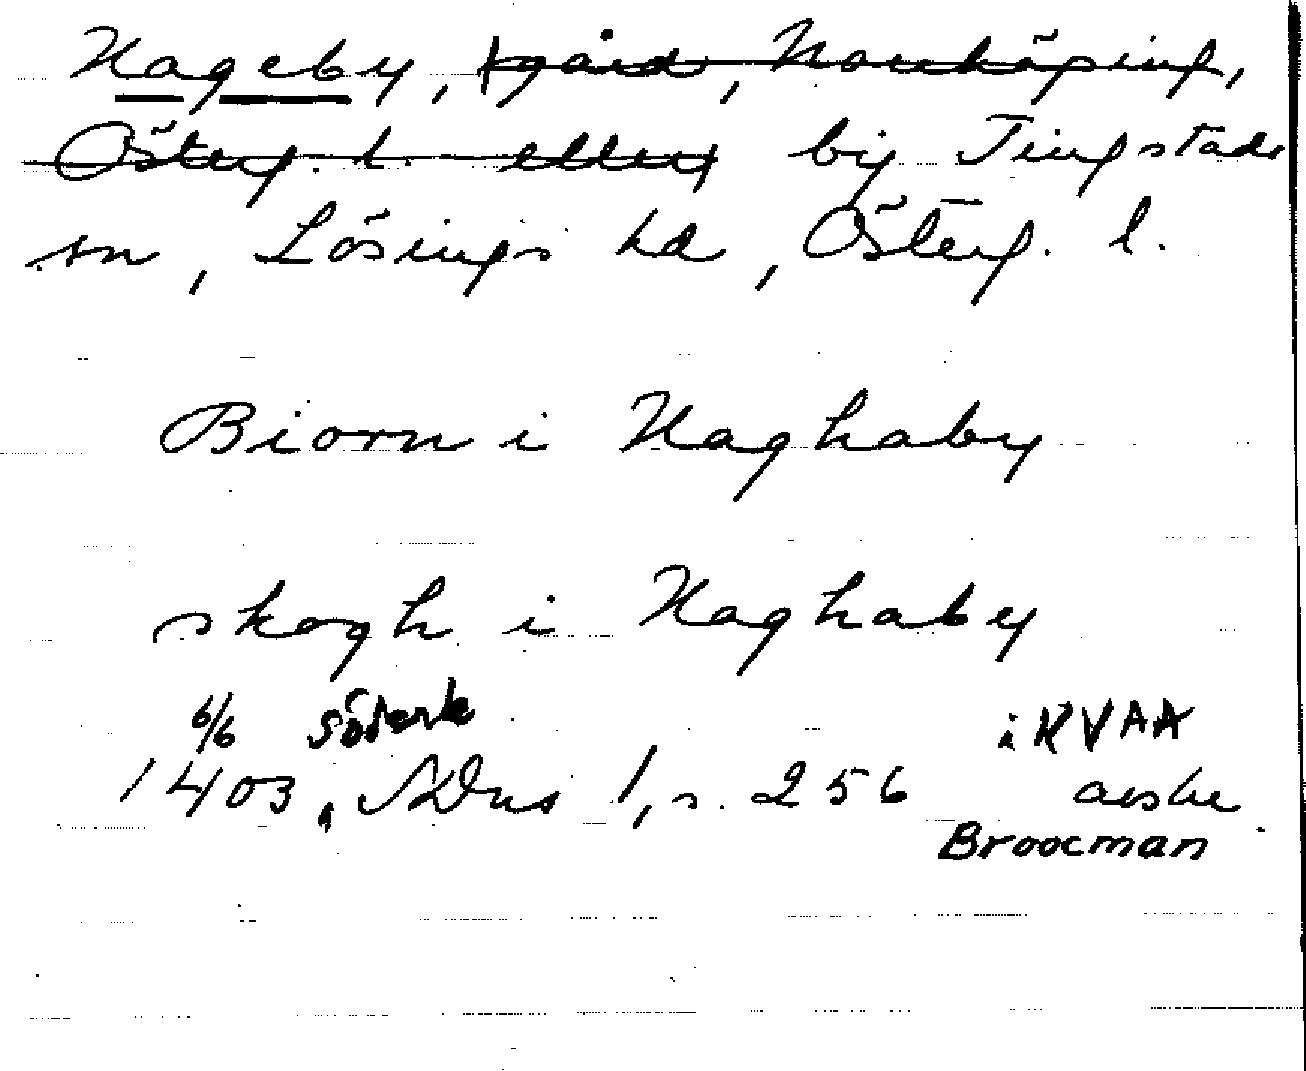 Hageby, (gård, Norrköping,
Österg. l. eller) by Tingstads
sn, Lösings hd, Österg. l.
Biorn i Haghaby
skogh i Haghaby
6/6 Söderk i KVAA
1403, SDns 1, s. 256 avskr
Broocman